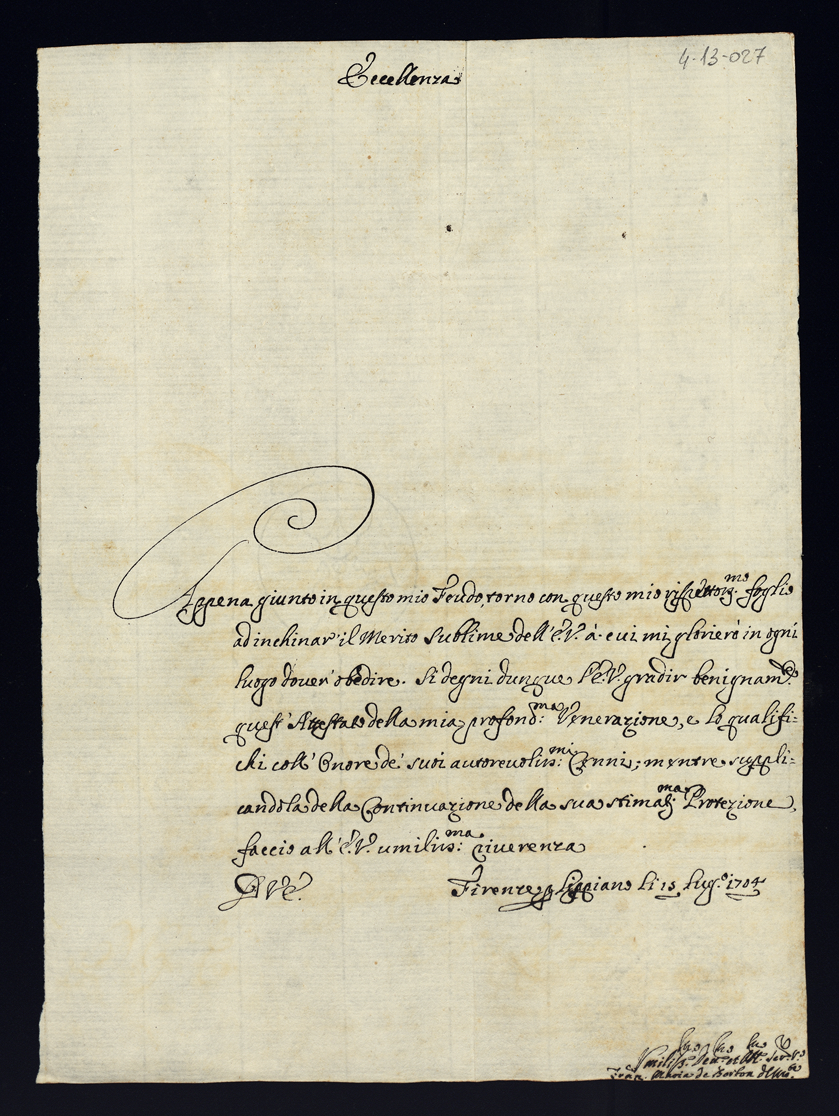 4-13-027
Eccellenza
Appena giunto in questo mio Feudo, torno con questo mio rispettosis.mo foglio
ad inchinar' il Merito sublime dell' E. V. à cui mi glorierò in ogni
luogo dover' obedire. Si degni dunque l'E. V. gradir benignam.te
quest' Attestato della mia profond.ma Venerazione, e lo qualifi=
chi coll' Onore de' suoi autorevoliss.mi Cenni; mentre suppli=
candola della Continuazione della sua stimab.ma Protezione,
faccio all' E. V. umiliss.ma riverenza
D. V. E.
Firenze p Lippiano li 15 Lug.o 1704
Umiliss. Dev. et Obl. Ser.
Maria de Borbon del